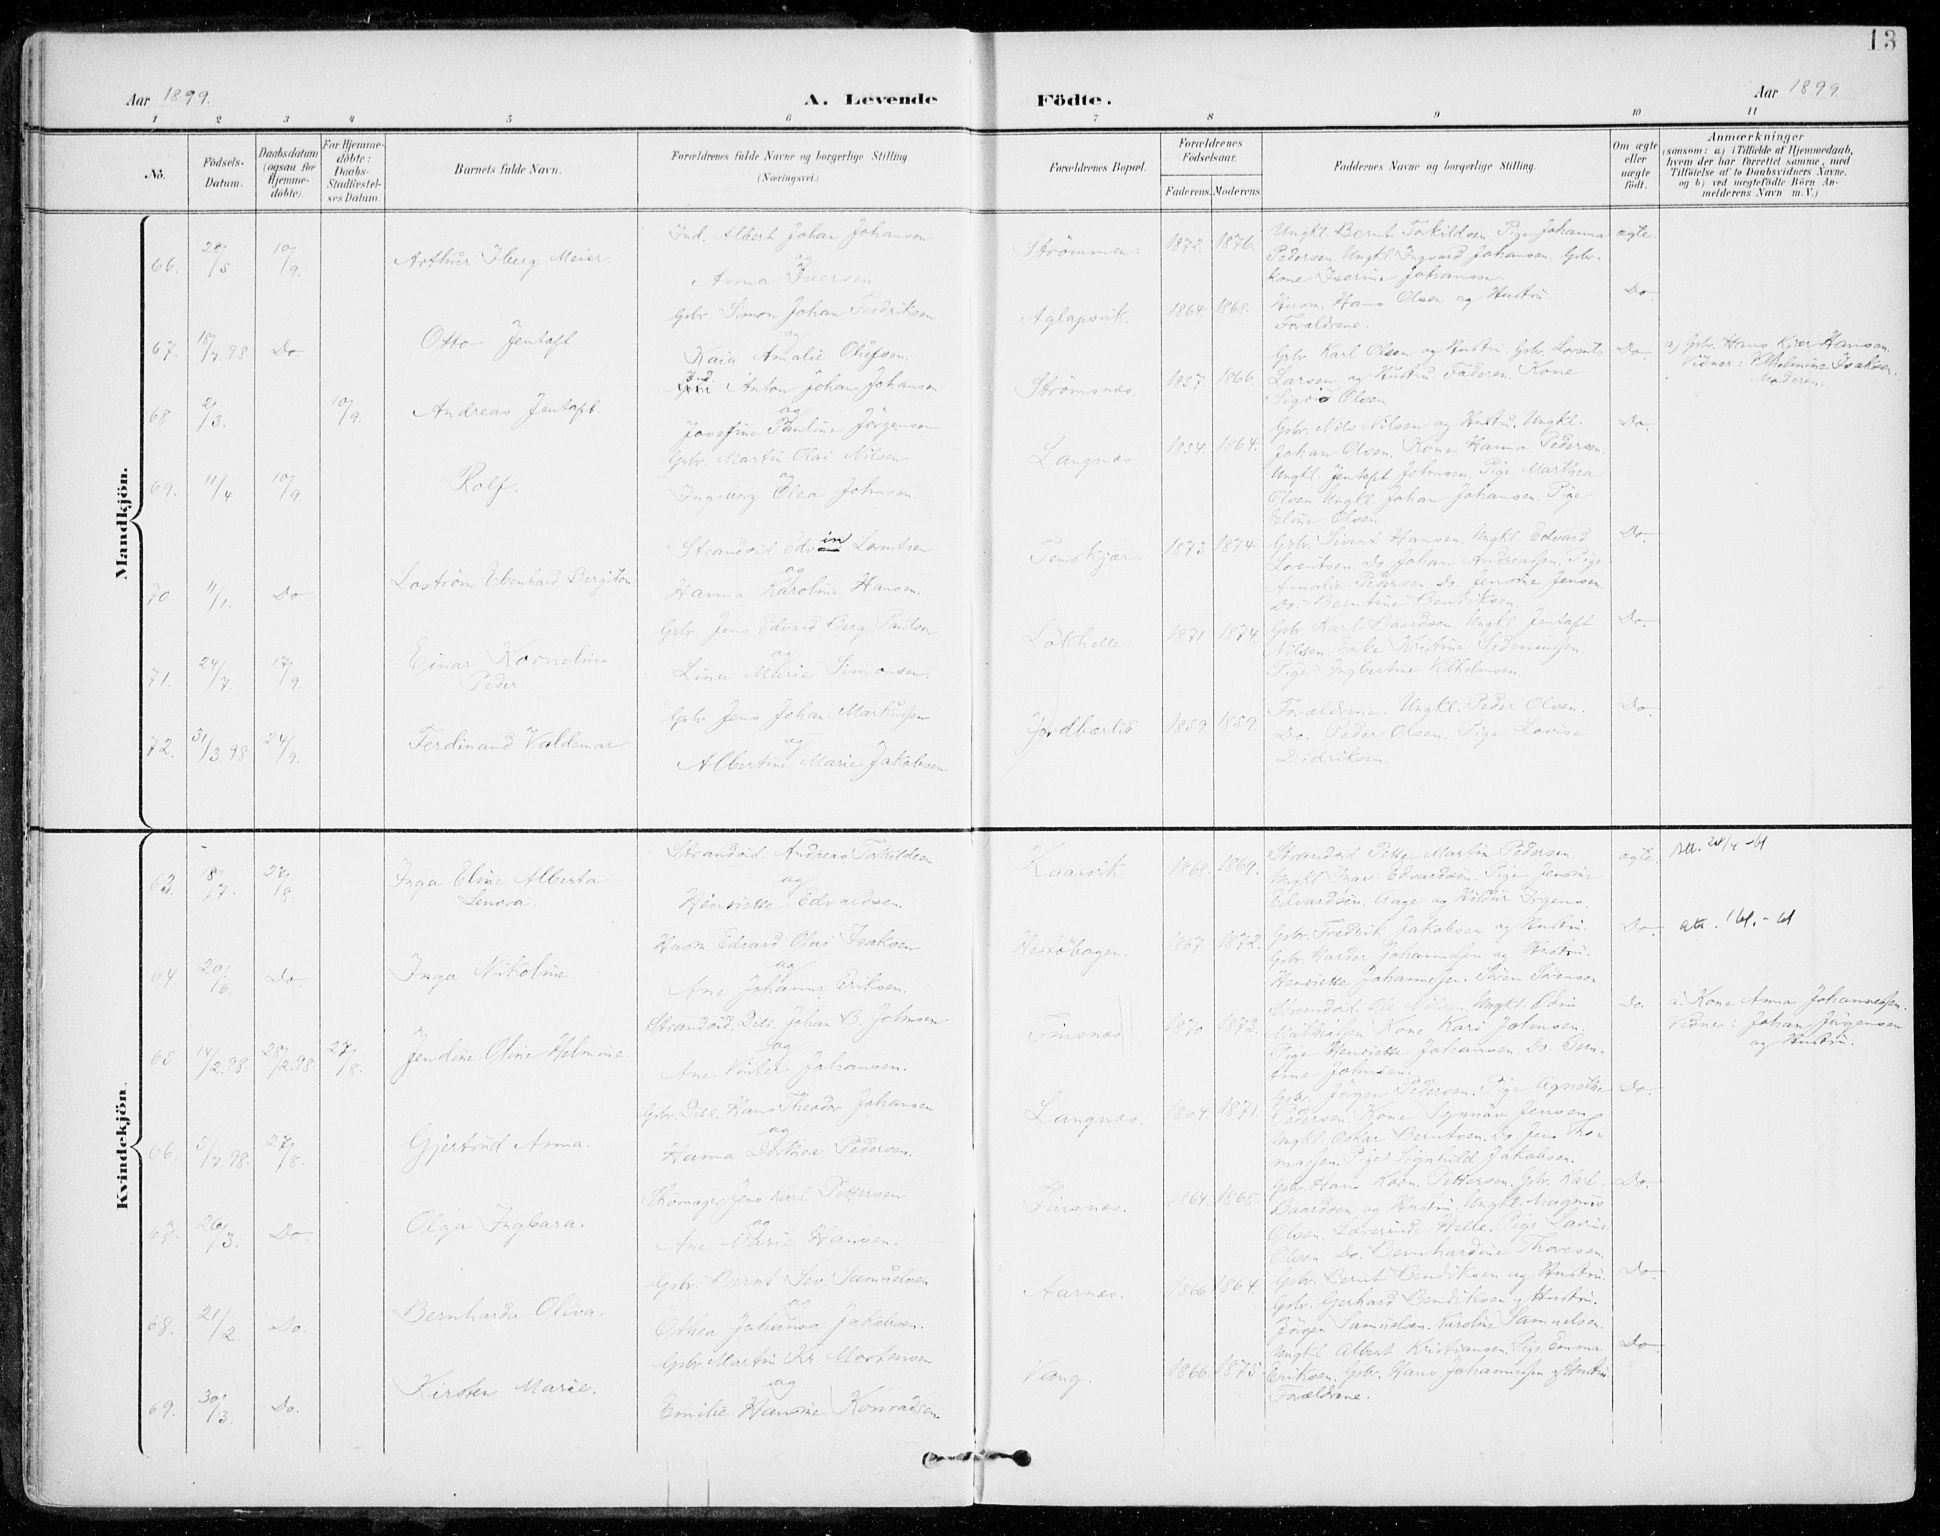 13
Aar 1899.
A. Levende Födte.
Aar 1899
1 2 3 4 5 6 7 8 9 10 11
No.
Födsels-
Datum.
Daabsdatum
(ogsaa for
Hjemme-
döbte).
For Hjemme-
döbte:
Daabs-
Stadfæstel-
ses Datum.
Barnets fulde Navn.
Forældrenes fulde Navne og borgerlige Stilling
(Næringsvei.)
Forældrenes Bopæl.
Forældrenes
Födselsaar.
Faderens. Moderens.
Faddernes Navne og borgerlige Stilling.
Om ægte
eller
uægte
födt.
Anmærkninger
(saasom: a) i Tilfælde af Hjemmedaab,
hvem der har forrettet samme, med
Tilföielse af to Daabsvidners Navne,
og b) ved uægtefödte Börn An-
melderens Navn m. V.)
Mandkjön.
66. 28/5 10/9. Arthur Iberg Meier.
Ind. Albert Johan Johansen
og
Anna Iversen
Strömmen. 1872. 1876.
Ungkl. Bernt Torkildsen. Pige Johanna
Pedersen. Ungkl. Ingvard Johansen. Grbr.
Kone Iverine Johansen.
ægte.
67. 18/7.98. Do. Otto Jentoft
Grbr. Simon Johan Fredriksen
og
Kaia Amalie Olufsen.
Aglapsvik. 1864. 1868.
Husm. Hans Olsen og Hustru.
Forældrene.
Do.
68. 2/3. 10/9. Andreas Jentoft.
Ind. Anton Johan Johansen
og
Josefine Pauline Jörgensen
Strömsnæs. 1857. 1866.
Grbr. Karl Olsen og Hustru. Grbr. Lorents
Larsen og Hustru. Faderen. Kone
Sigrid Olsen.
Do.
a) Grbr. Hans Kræ Hansen.
Vidner: Vilhelmine Isaksen.
Moderen.
69. 11/4 10/9 Rolf.
Grbr. Martin Olai Nilsen
og
Ingeborg Olea Johnsen.
Langnæs 1854. 1864.
Grbr. Nils Nilsen og Hustru. Ungkl.
Johan Olsen. Kone Hanna Pedersen.
Ungkl. Jentoft Johnsen. Pige Marthea
Olsen. Ungkl. Johan Johansen. Pige
Eline Olsen.
Do.
70 11/1. Do. Laström Ebenhard Bergiton
Strandsid. Edvin Lorentsen
og
Hanna Karoline Hansen.
Tenskjær. 1873 1874
Grbr. Sivert Hansen. Ungkl. Edvard
Lorentsen. Do. Johan Andreassen. Pige
Amalie Pedersen. Do. Jensine Jensen.
Do. Berntine Bendiksen.
Do.
71. 24/7. 17/9. Einar Kornelius
Peder.
Grbr. Jens Edvard Berg Paulsen
og
Lina Marie Simonsen.
Lökhelle. 1871 1874.
Grbr. Karl Baardsen. Ungkl. Jentoft
Nilsen. Enke Kristine
Pige Ingbertine Vilhelmsen.
Do.
72. 31/3.98 24/9. Ferdinand Valdemar
Grbr. Jens Johan Markussen
og
Albertine Marie Jakobsen
Jordbærlid 1859. 1859.
Forældrene. Ungkl. Peder Olsen.
Do. Peder Olsen. Pige Lovise
Didriksen.
Do.
Kvindekjön.
63. 18/7. 27/8. Inga Eline Alberta
Lenora.
Strandsid. Andreas Torkildsen
og
Henriette Edvardsen.
Kaarvik. 1868. 1869.
Strandsid. Petter Martin Pedersen.
Ungkl. Ingv. Edvardsen. Pige Jensine
Edvardsen. Aage og Hildur Irgens.
ægte.
Att. 28/4-61
64. 20/6. Do. Inga Nikoline
Husm. Edvard Olai Isaksen
og
Ane Johanne Eriksen.
Hestöbogen. 1867 1872.
Grbr. Fredrik Jakobsen og Hustru.
Grbr. Harder Johannessen og Hustru.
Henriette Johannessen. Sören Sörensen
Do.
65 14/2.98. 28/2.98. 27/8. Jendine Oline Helmine.
Strandsid. Dets. Johan B. Johnsen
og
Ane Johansen.
Finsnæs 1870 1873.
Strandsid. Ole Nilsen. Ungkl. Edin
Mathisen. Kone Kari Johnsen.
Pige Henriette Johansen. Do. Bern-
tine Johnsen.
Do.
a. Kone Anna Johannessen.
Vidner: Johan Jörgensen
og Hustru.
66. 5/7.98. 27/8. Gjertrud Anna.
Grbr. Dets. Hans Theodor Johansen
og
Hanna Dorthea Pedersen.
Langnæs. 1864 1871.
Grbr. Jörgen Pedersen. Pige Agnethe
Pedersen. Kone Synnöv Jensen
Ungkl. Oskar Berntsen. Do. Jens Tho-
massen. Pige Signhild Jakobsen.
Do.
67. 26/3. Do. Olga Ingbara.
Skomager Jens Karl Pettersen
og
Ane Marie Hansen.
Finsnæs. 1864. 1865.
Grbr. Hans Korn. Pettersen. Grbr. Karl
Baardsen og Hustru. Ungkl. Magnus
Olsen. Helle. Pige Lavine
Olsen. Do. Bernhardine Thoresen.
Do.
68. 21/2. Do. Bernharda Oliva.
Grbr. Bernt Sev. Samuelsen
og
Othea Johanna Jakobsen.
Aarnæs. 1866 1864.
Grbr. Bernt Bendiksen og Hustru.
Grbr. Gerhard Bendiksen og Hustru.
Jörgen Samuelsen. Karoline Samuelsen.
Do.
69. 30/3. Do. Kirsten Marie.
Grbr. Martin Kr. Mortensen
og
Emilie Hansine Konradsen.
Vang. 1866. 1875.
Ungkl. Albert Kristiansen. Pige Emma
Eriksen. Grbr. Hans Johannessen og Hustru
Forældrene.
Do.